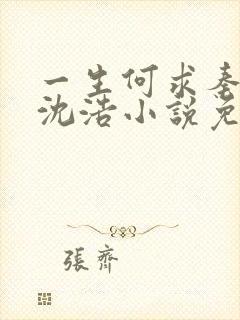 一生何求秦
沈浩小説免
張齊